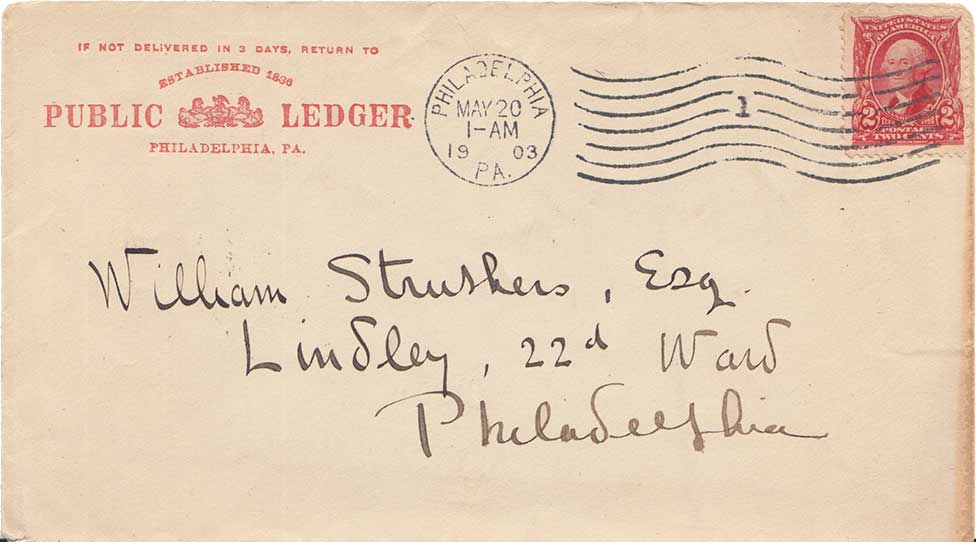 IF NOT DELIVERED IN 3 DAYS, RETURN TO
ESTABLISHED 1836
PUBLIC LEDGER
PHILADELPHIA, PA.
PHILADELPHIA
MAY 20
1-AM
1903
PA.
1
UNITED STATES
OF AMERICA
2 2
POSTAGE
TWO CENTS
William Struthers, Esq.
Lindley, 22d Ward
Philadelphia